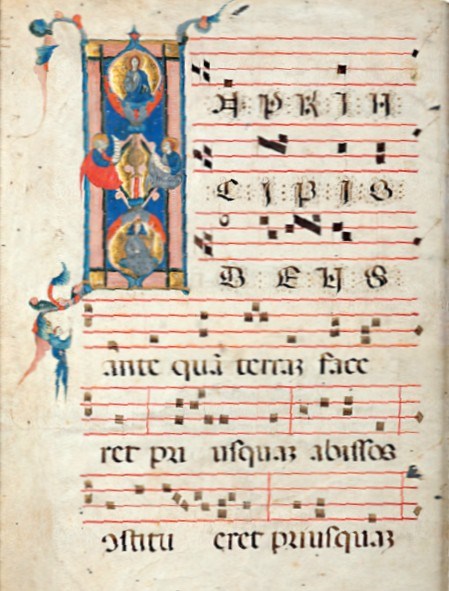 N P R I N
C I P I O
D E U S
ante quā terraꝫ face
ret pri usquaꝫ abissos
ꝯstitu eret priusquaꝫ